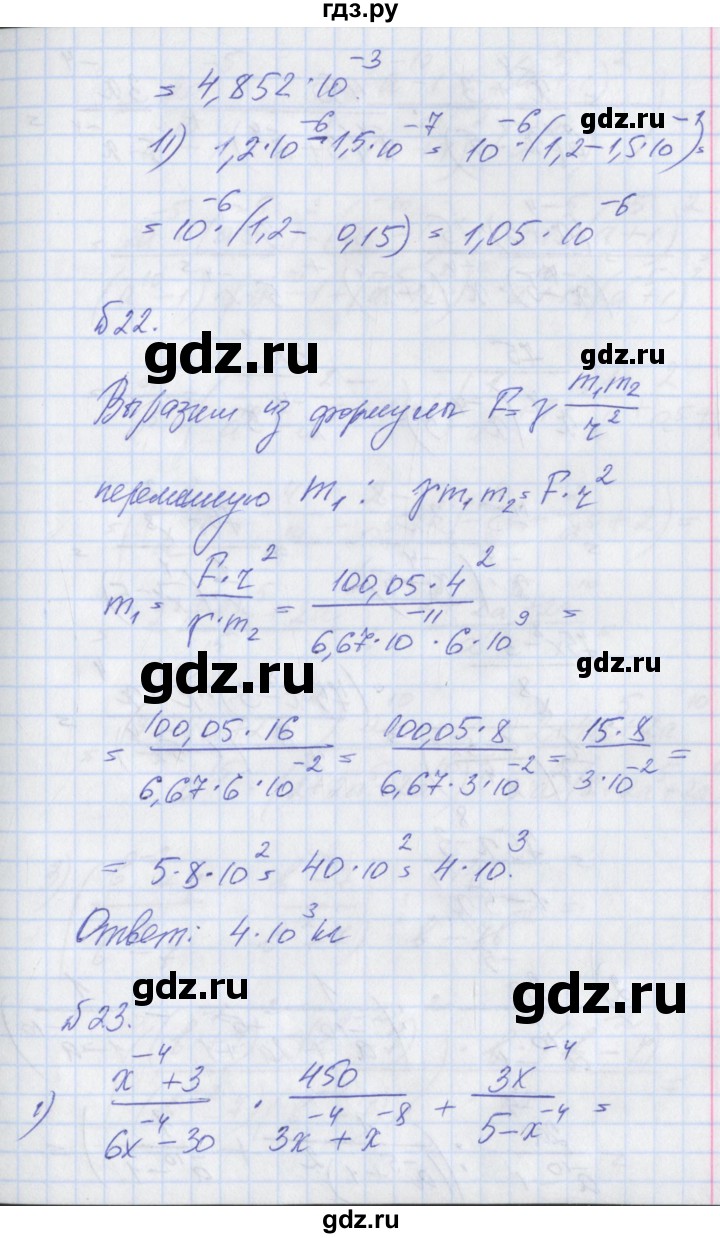 гдз.ру
= 4,852·10⁻³.
11) 1,2·10⁻⁶ - 1,5·10⁻⁷ = 10⁻⁶·(1,2-1,5·10⁻¹)=
gdz.ru
= 10⁻⁶·(1,2- 0,15) = 1,05·10⁻⁶
622.
gdz.ru
gdz.ru
Выразим из формулы F=γ m₁m₂/r²
переменную m₁: γm₁m₂=F·r²
m₁= F·r²/γ·m₂ = 100,05·4²/6,67·10⁻¹¹·6·10⁹ =
gdz.ru
gdz.ru
= 100,05·16/6,67·6·10⁻² = 100,05·8/6,67·3·10⁻² = 15·8/3·10⁻² =
= 5·8·10²= 40·10²= 4·10³.
Ответ: 4·10³кг
gdz.ru
gdz.ru
623.
1) x⁻⁴+3/6x⁻⁴-30 · 450/3x⁻⁴+x⁻⁸ + 3x⁻⁴/5-x⁻⁴ =
gdz.ru
gdz.ru